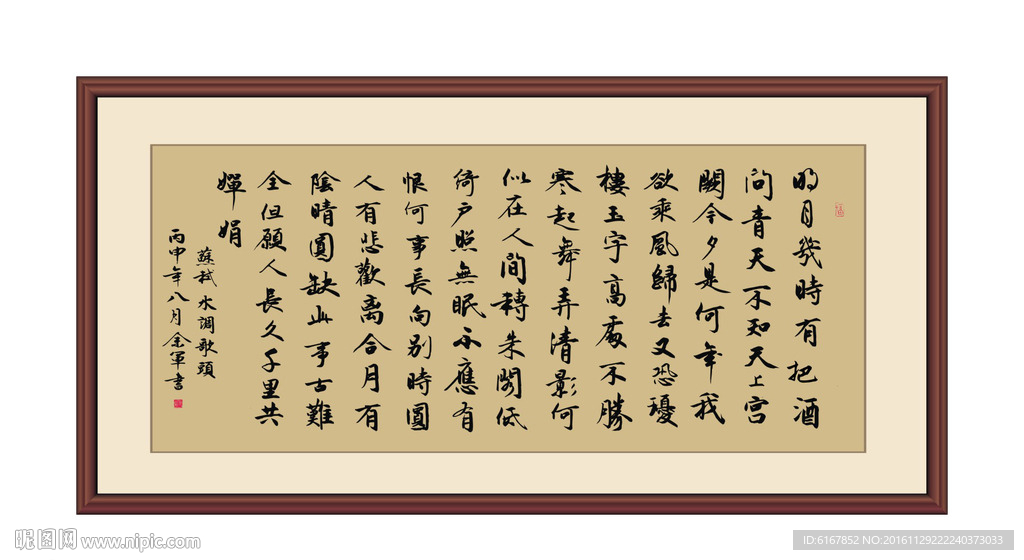 明月幾時有把酒
問青天不知天上宮
闕今夕是何年我
欲乘風歸去又恐瓊
樓玉宇高處不勝
寒起舞弄清影何
似在人間轉朱閣低
綺戶照無眠不應有
恨何事長向别時圓
人有悲歡离合月有
陰晴圓缺此事古難
全但願人長久千里共
嬋娟
蘇軾水調歌頭
丙申年八月軍書
昵图网 www.nipic.com
ID:6167852 NO:20161129222240373033